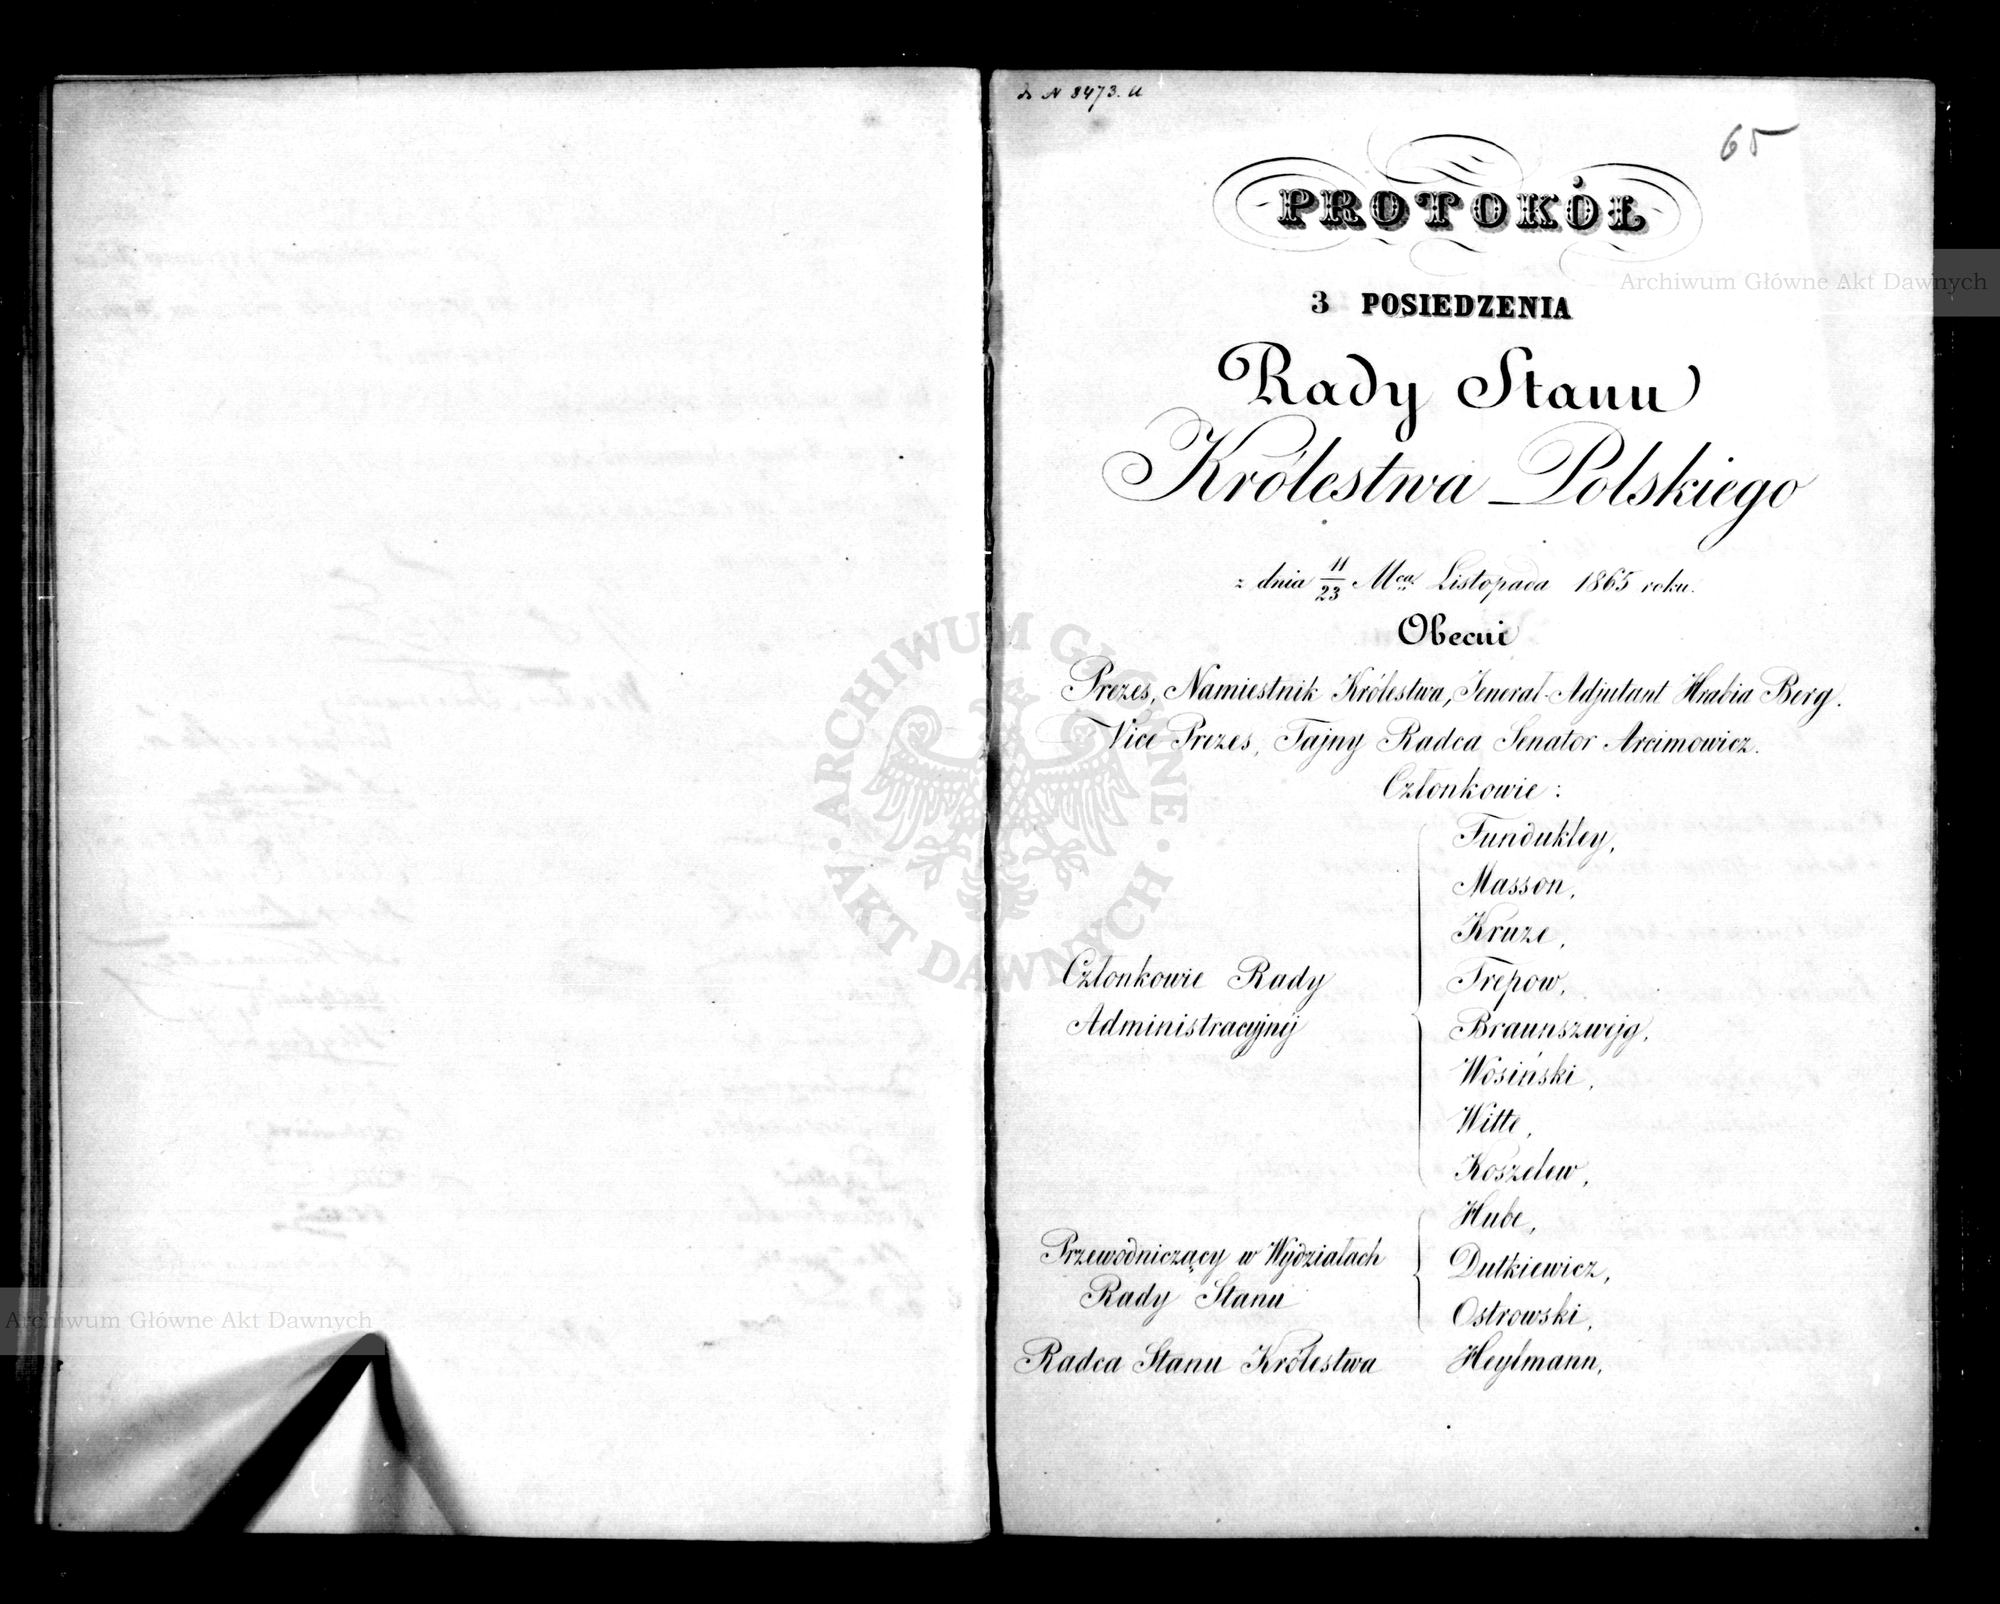 № 8473. a
65
PROTOKÓŁ
3 POSIEDZENIA
Rady Stanu
Królestwa Polskiego
z dnia 11/23 Mca Listopada 1865 roku.
Obecni
Prezes, Namiestnik Królestwa, Jenerał-Adjutant Hrabia Berg.
Vice Prezes, Tajny Radca Senator Arcimowicz.
Członkowie:
Fundukley,
Masson,
Kruze,
Członkowie Rady
Trepow,
Administracyjnéj
Braunszwejg,
Wosiński,
Witte,
Koszelew,
Hube,
Przewodniczący w Wydziałach
Dutkiewicz,
Rady Stanu
Ostrowski,
Radca Stanu Królestwa Heylmann,
Archiwum Główne Akt Dawnych
ARCHIWUM GŁÓWNE AKT DAWNYCH
Archiwum Główne Akt Dawnych